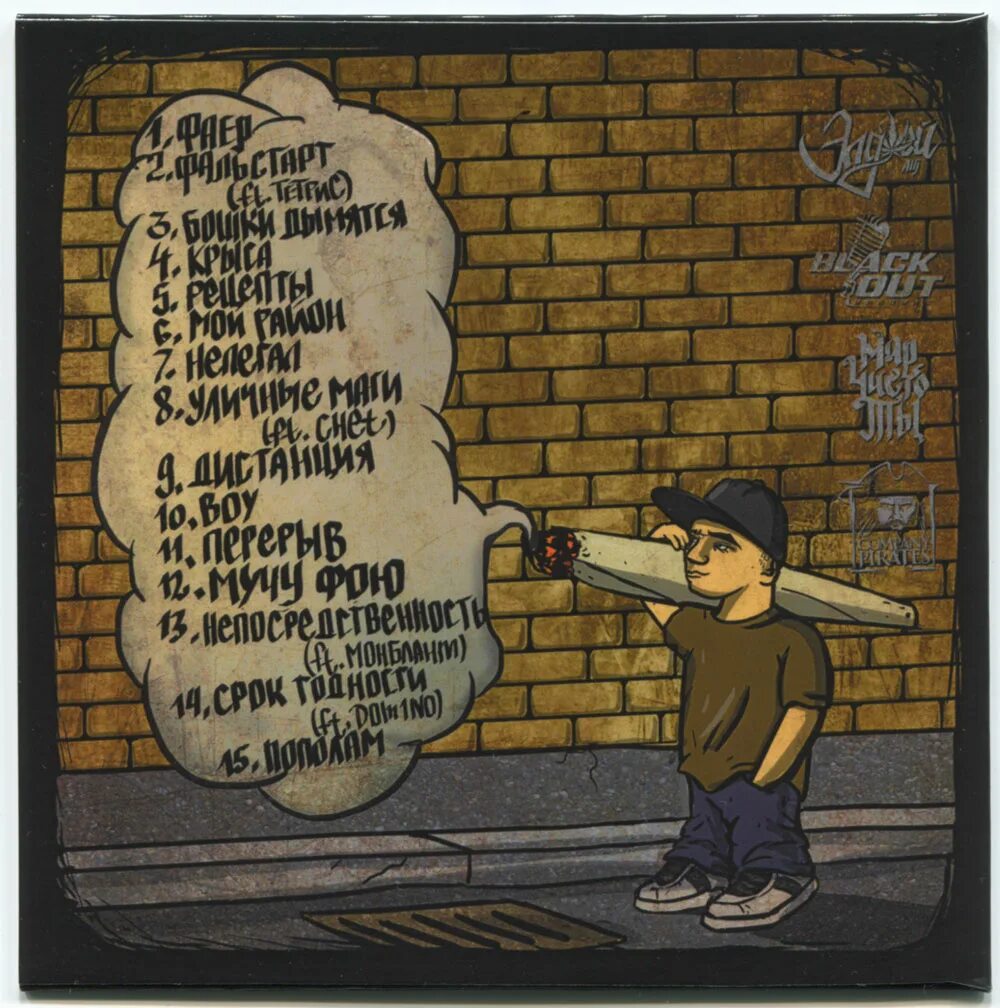 1. ФАЕР
2. ФАЛЬСТАРТ
(ft. ТЕТРиС)
3. БОШКИ ДЫМЯТСЯ
4. КРЫСА
5. РЕЦЕПТЫ
6. МОЙ РАЙОН
7. НЕЛЕГАЛ
8. УЛИЧНЫЕ МАГИ
(ft. CHEt)
9. ДИСТАНЦИЯ
10. ВОУ
11. ПЕРЕРЫВ
12. МУЧУ ФОЮ
13. НЕПОСРЕДСТВЕННОСТЬ
(ft. МОНБЛАНт)
14. СРОК ГОДНОСТИ
(ft. DOm1NO)
15. ПОПОЛАМ
BLACK
OUT
Мир
Чисто
Ты
COMPANY
PIRATES